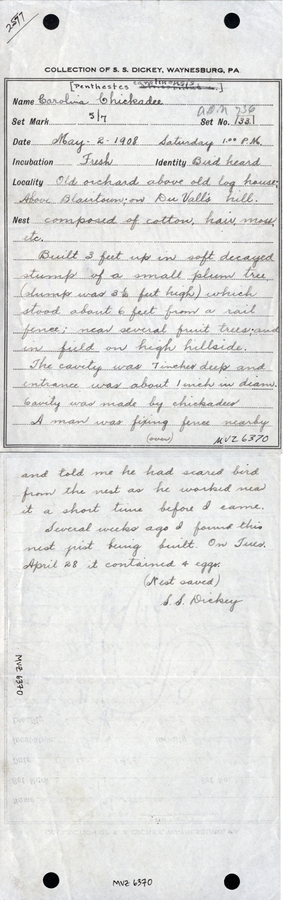 2597
COLLECTION OF S. S. DICKEY, WAYNESBURG, PA
[Penthestes carolinensis]
Name Carolina Chickadee
A.O.U. 736
Set Mark 5/7 Set No. 133
Date May - 2 - 1908 Saturday 1:00 P.M.
Incubation Fresh Identity Bird heard
Locality Old orchard above old log house;
Above Blairtown; on Du Vall's hill.
Nest composed of cotton, hair, moss,
etc.
Built 3 feet up in soft decayed
stump of a small plum tree
(stump was 3½ feet high) which
stood about 6 feet from a rail
fence; near several fruit trees; and
in field on high hillside.
The cavity was 7 inches deep and
entrance was about 1 inch in diam.
Cavity was made by chickadees
A man was fixing fence nearby
(over) MVZ 6370
and told me he had scared bird
from the nest as he worked near
it a short time before I came.
Several weeks ago I found this
nest just being built. On Tues.
April 28 it contained 4 eggs.
(Nest saved)
S. S. Dickey
MVZ 6370
MVZ 6370